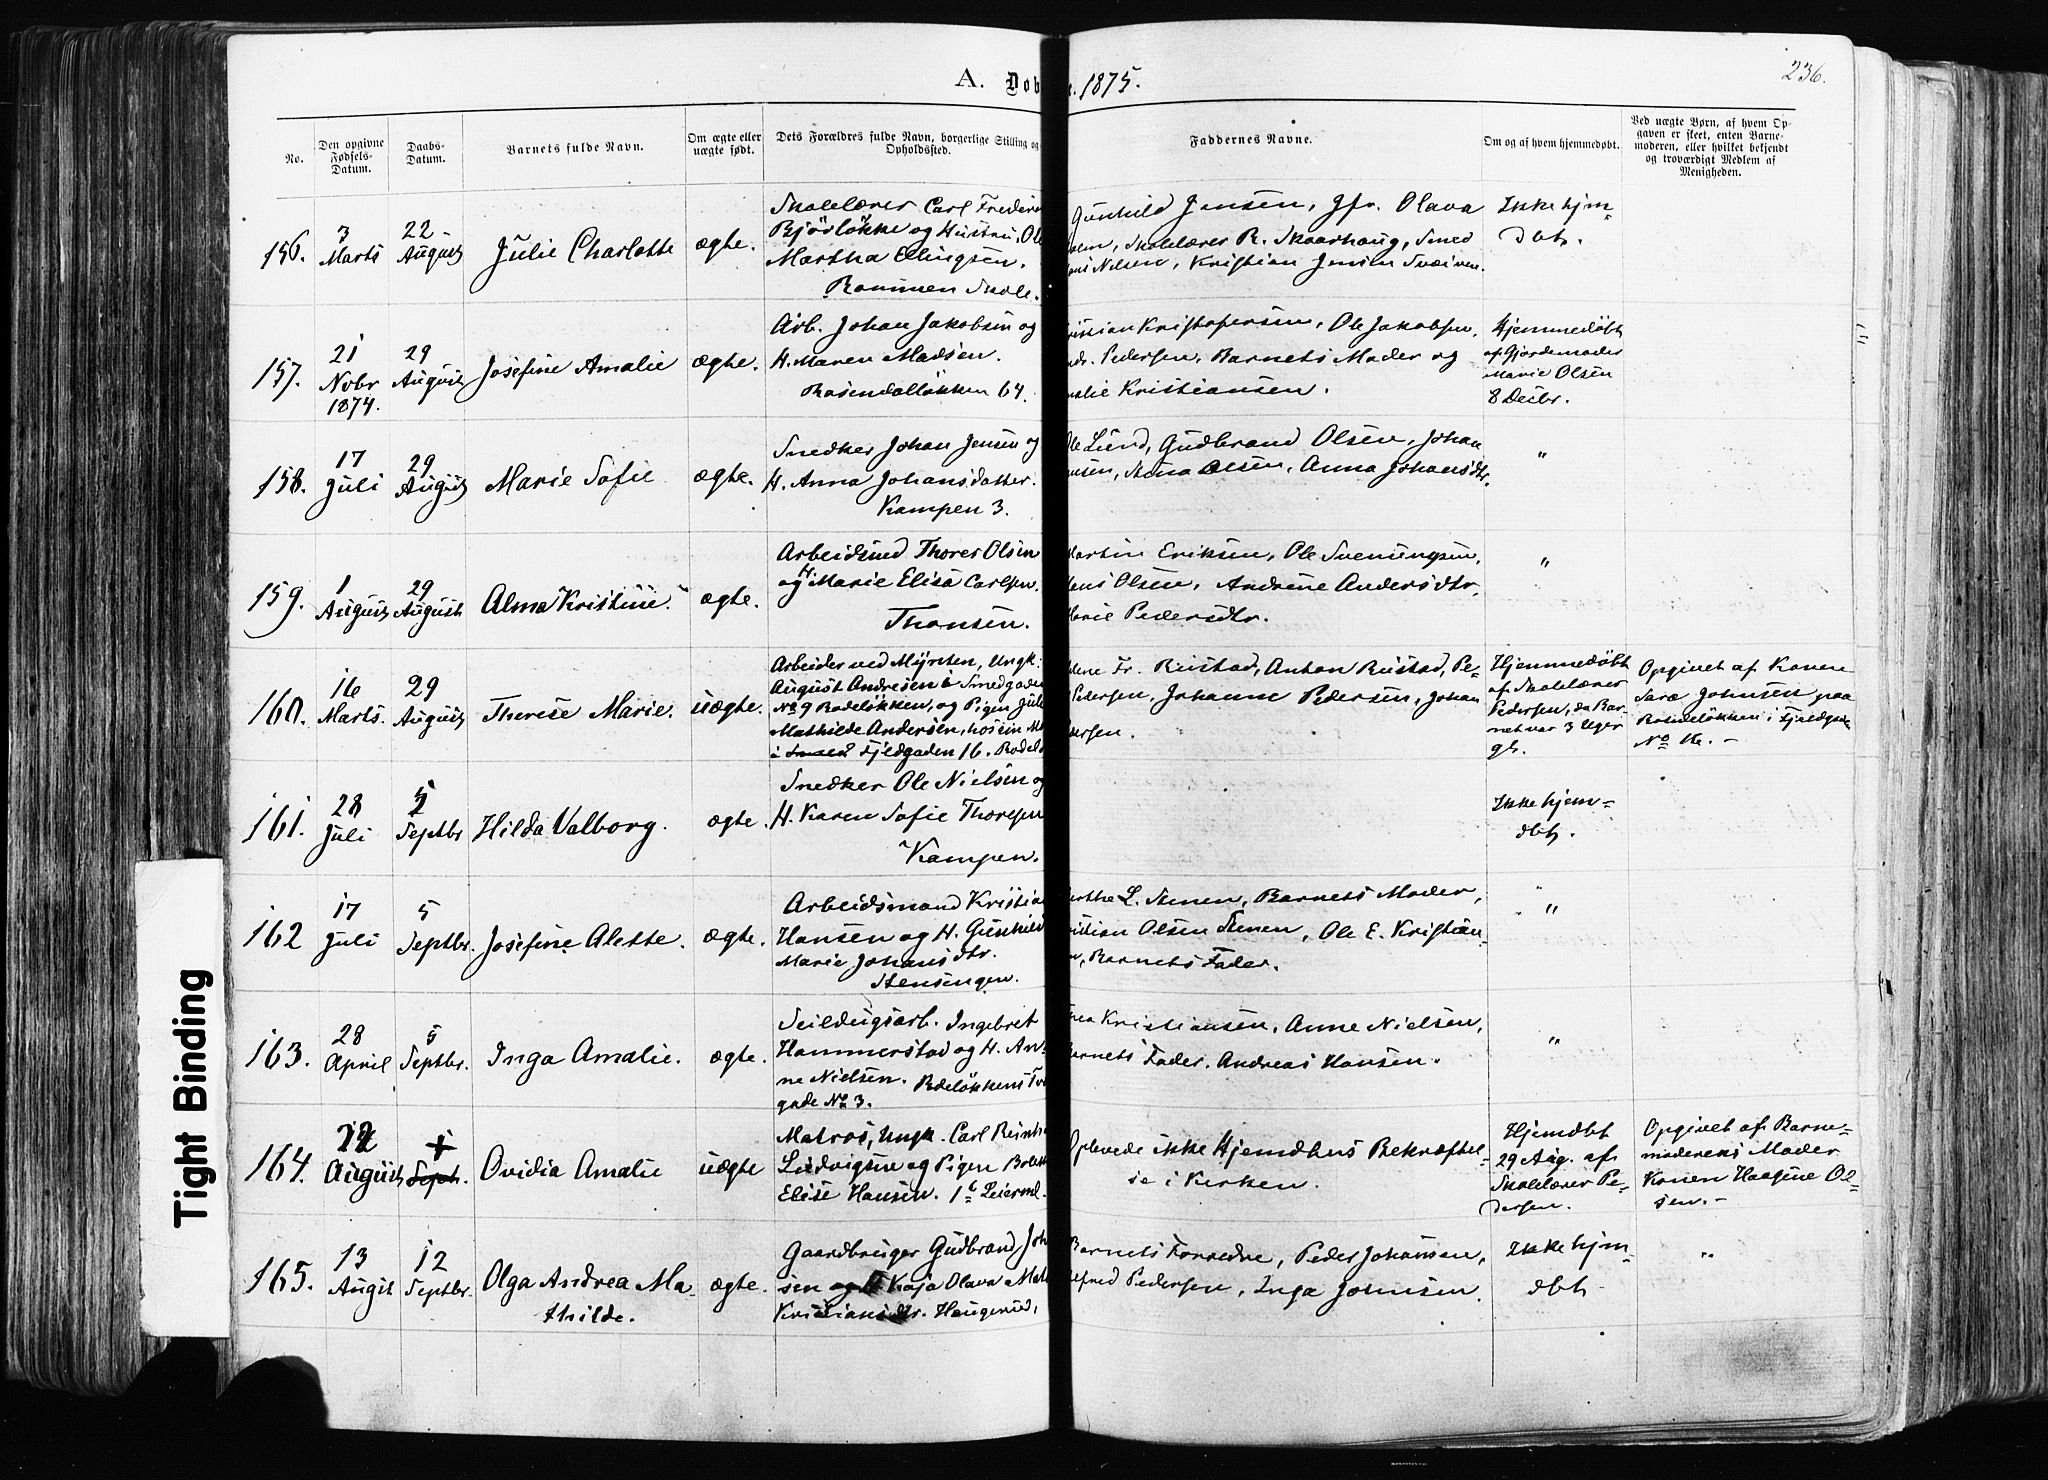 236.
A. Døb
1875.
No.
Den opgivne
Fødsels-
Datum.
Daabs-
Datum.
Barnets fulde Navn.
Om ægte eller
uægte født.
Dets Forældres fulde Navn, borgerlige Stilling og
Opholdssted.
Faddernes Navne.
Om og af hvem hjemmedøbt.
Ved uægte Børn, af hvem Op-
gaven er skeet, enten Barne-
moderen, eller hvilket bekjendt
og troværdigt Medlem af
Menigheden.
156.
3
Marts
22
August
Julie Charlotte
ægte.
Skolelærer Carl Frederi
Bjørløkke og Hustru, Ol
Martha Ellingsen.
Rommen Skole.
Gunhild Jensen, Jfr. Olava
Skolelærer R. Skaarhaug, Smed
Nilsen, Kristian Jensen
Ikke hjm-
dbt.
157.
21
Novbr
1874.
29
August
Josefine Amalie
ægte.
Arb. Johan Jakobsen og
H. Maren Madsen.
Rosendalløkken 64.
ristian Kristofersen, Ole Jakobsen,
Pedersen, Barnets Moder og
malie Kristiansen.
Hjemmedøbt
af Gjordemoder
Marie Olsen
8 Decbr.
158.
17
Juli
29
August
Marie Sofie
ægte.
Snedker Johan Jensen og
H. Anna Johansdatter.
Kampen 3.
Ole Lund, Gudbrand Olsen, Johan
nsen, Stina Olsen, Anna Johansdtr.
"
159.
1
August
29
August
Alma Kristine.
ægte.
Arbeidsmd Thorer Olsen
og H. Marie Elise Carlsen.
Thonsen.
Martin Eriksen, Ole Svenungsen,
ens Olsen, Andrine Andersdtr,
Marie Pedersdtr.
"
160.
16
Marts.
29
August
Therese Marie.
uægte.
Arbeider ved Mynten, Ungk:
August Andresen i Smedgaden
No 9 Rodeløkken, og Pigen Juli
Mathilde Andersen, hos sin M
i Fjeldgaden 16. Rodel
Fr. Rustad, Anton Rustad, Pe-
Pedersen, Johanne Pedersen, Johan
dersen.
Hjemmedøbt
af Skolelærer
Pedersen, da Bar-
net var 3 Uger
gl.
Opgivet af Konen
Sara Johnsen paa
Rodeløkken i Fjeldgade
No 16. -
161.
28
Juli
5
Septbr
Hilda Valborg.
ægte.
Snedker Ole Nielsen og
H. Karen Sofie Thoresen
Kampen.
Ikke hjem-
dbt.
162
17
Juli
5
Septbr.
Josefine Alette.
ægte.
Arbeidsmand Kristia
Hansen og H. Gunhild
Marie Johansdtr.
Stensengen.
erthe L. Stenen, Barnets Moder,
ristian Olsen Stenen, Ole E. Kristian-
n, Barnets Fader.
"
163.
28
April
5
Septbr.
Inga Amalie.
ægte.
Seildugsarb. Ingebret
Hammerstad og H. An-
ne Nielsen. Rdeløkkens Tv
gade No 3.
Kristiansen, Anne Nielsen,
Barnets Fader, Andreas Hansen.
"
164.
12
August
Septr.
Ovidia Amalie
uægte
Matros, Ungk. Carl Reinha
Ludvigsen og Pigen Bolett
Elise Hansen. 1ste Leierml.
Oplevede ikke Hjemdbns Bekræftel-
se i Kirken.
Hjemdbt
29 Aug. af
Skolelærer Pe-
dersen.
Opgivet af Barne-
moderens Moder
Konen Olsen. -
165.
13
Augst
12
Septbr.
Olga Andrea Ma-
thilde.
ægte.
Gaardbruger Gudbrand Joh
sen og H Kaja Olava Mat
Kristiansdtr. Haugerud,
Barnets Forældre, Peder Johansen,
lfred Pedersen, Inga Johnsen.
Ikke hjm-
dbt
"
Tight Binding